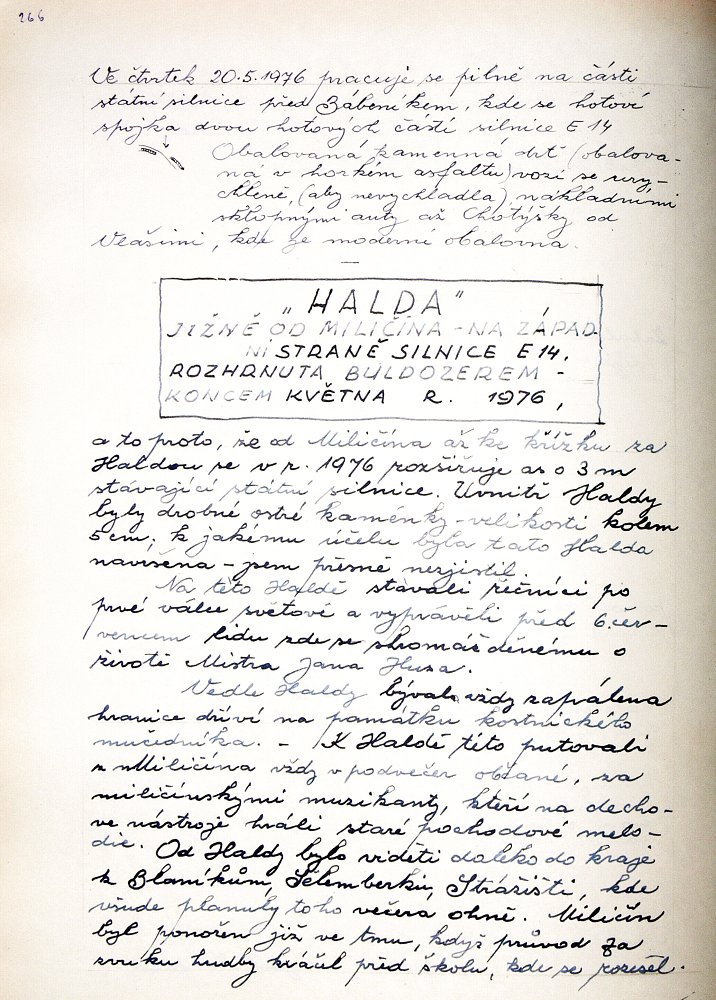 266
Ve čtvrtek 20.5.1976 pracuje se pilně na části
státní silnice před Bábeníkem, kde se hotoví
spojka dvou hotových částí silnice E 14
Obalovaná kamenná drť (obalova-
ná v horkém asfaltu) vozí se ury-
chleně, (aby nevychladla), nákladními
sklopnými auty až Chotýšky od
Vlašimi, kde je moderní obalovna.
—
„HALDA"
JIŽNĚ OD MILIČÍNA - NA ZÁPAD-
NÍ STRANĚ SILNICE E 14,
ROZHRNUTA BULDOZEREM -
KONCEM KVĚTNA R. 1976,
a to proto, že od Miličína až ke křížku za
Haldou se v r. 1976 rozšiřuje as o 3 m
stávající státní silnice. Uvnitř Haldy
byly drobné ostré kaménky - velikosti kolem
5 cm; k jakému účelu byla tato Halda
navršena - jsem přesně nezjistil.
Na této Haldě stávali řečníci po
prvé válce světové a vyprávěli před 6. čer-
vencem lidu zde se shromážděnému o
životě Mistra Jana Husa.
Vedle Haldy bývala vždy zapálena
hranice dříví na památku kostnického
mučedníka. - K Haldě této putovali
z Miličína vždy v podvečer občané, za
miličínskými muzikanty, kteří na decho-
vé nástroje hráli staré pochodové melo-
die. Od Haldy bylo viděti daleko do kraje
k Blaníkům, Šelemberku, Strážišti, kde
všude planuly toho večera ohně. Miličín
byl ponořen již ve tmu, když průvod za
zvuku hudby kráčel před školu, kde se rozešel.